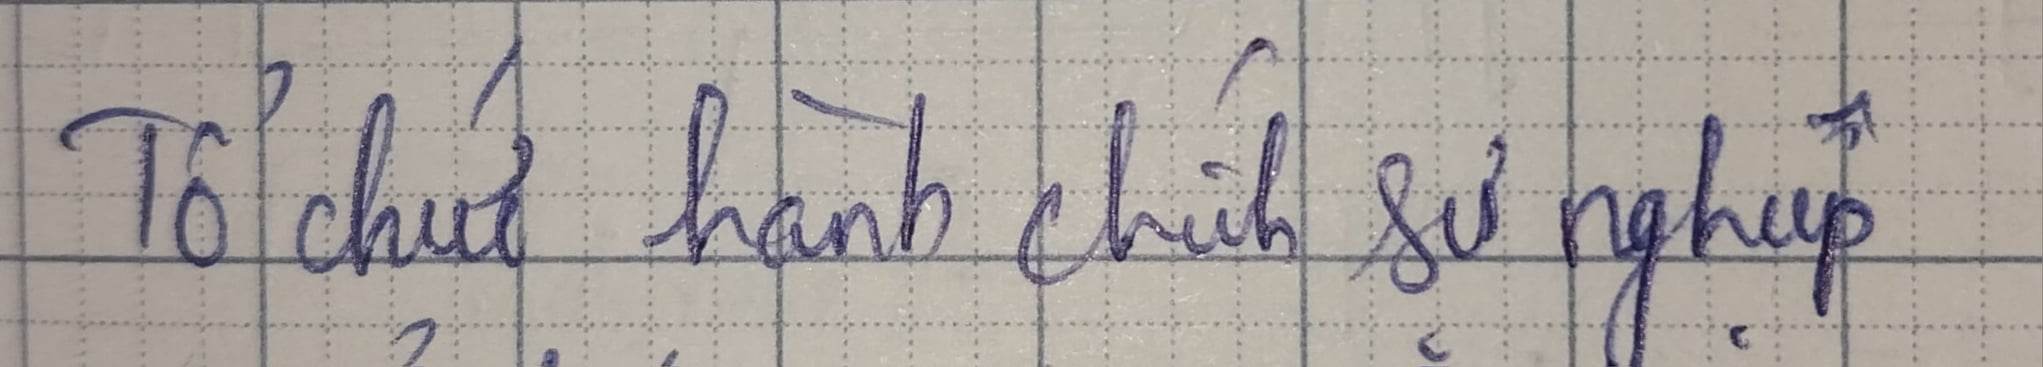 Tổ chức hành chính sự nghiệp